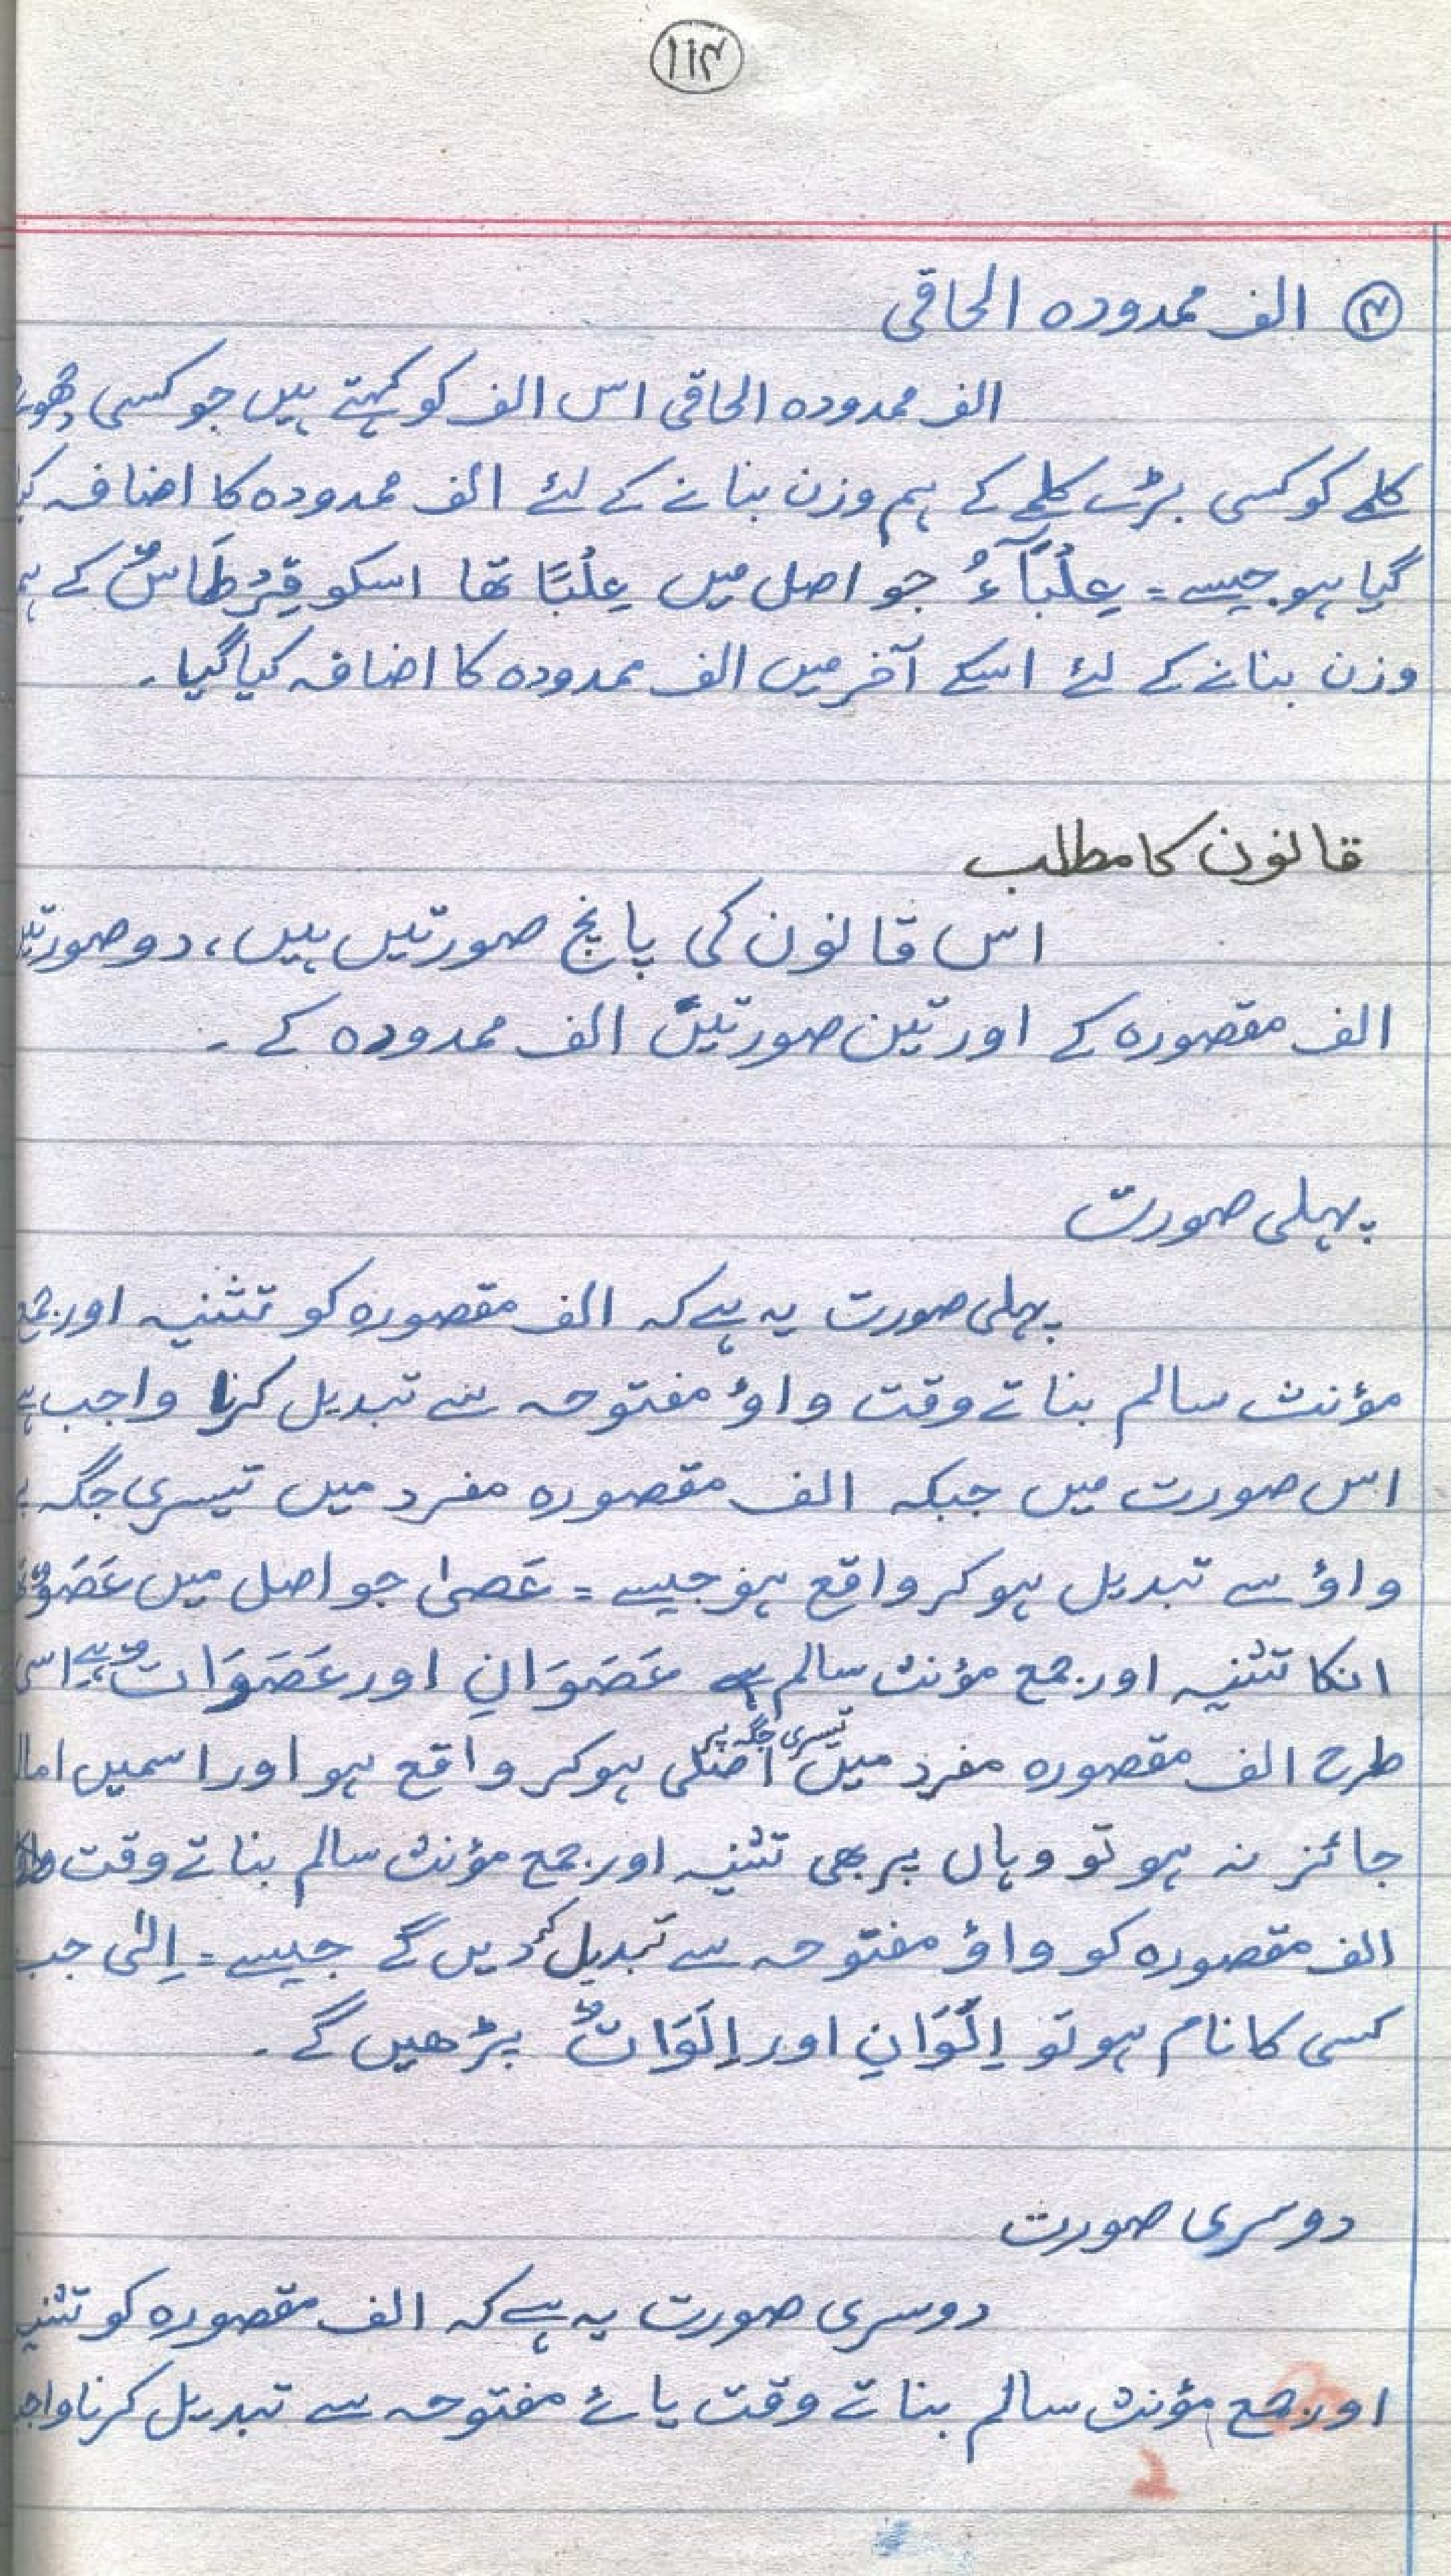 ۱۱۴
۴ الف ممدودہ الحاقی
الف ممدودہ الحاقی اس الف کو کہتے ہیں جو کسی
کلمے کو کسی بڑے کلمے کے ہم وزن بنانے کے لئے الف ممدودہ کا اضافہ
گیا ہو جیسے = عِلْبَآءٌ جو اصل میں عِلْبًا تھا اسکو قِرْطَاسٌ کے
وزن بنانے کے لئے اسکے آخر میں الف ممدودہ کا اضافہ کیا گیا ۔
قانون کا مطلب
اس قانون کی پانچ صورتیں ہیں، دو صورتیں
الف مقصورہ کے اور تین صورتیں الف ممدودہ کے ۔
پہلی صورت
پہلی صورت یہ ہے کہ الف مقصورہ کو تثنیہ اور جمع
مؤنث سالم بناتے وقت واؤ مفتوحہ سے تبدیل کرنا واجب ہے
اس صورت میں جبکہ الف مقصورہ مفرد میں تیسری جگہ
واؤ سے تبدیل ہو کر واقع ہو جیسے = عَصىٰ جو اصل میں عَصَوٌ
انکا تثنیہ اور جمع مؤنث سالم عَصَوَانِ اور عَصَوَاتٌ ہے اسی
طرح الف مقصورہ مفرد میں تیسری جگہ پر اصلی ہو کر واقع ہو اور اسمیں
جائز نہ ہو تو وہاں پر بھی تثنیہ اور جمع مؤنث سالم بناتے وقت
الف مقصورہ کو واؤ مفتوحہ سے تبدیل کر دیں گے جیسے = اِلیٰ جب
کسی کا نام ہو تو اِلَوَانِ اور اِلَوَاتٌ پڑھیں گے ۔
دوسری صورت
دوسری صورت یہ ہے کہ الف مقصورہ کو تثنیہ
اور جمع مؤنث سالم بناتے وقت یائے مفتوحہ سے تبدیل کرنا